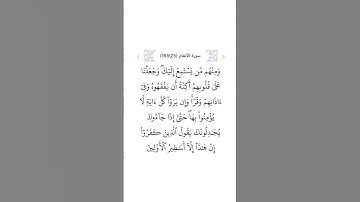 سورة الأنعام (165\25)
وَمِنْهُم مَّن يَسْتَمِعُ إِلَيْكَ ۖ وَجَعَلْنَا
عَلَىٰ قُلُوبِهِمْ أَكِنَّةً أَن يَفْقَهُوهُ وَفِىٓ
ءَاذَانِهِمْ وَقْرًا ۚ وَإِن يَرَوْا۟ كُلَّ ءَايَةٍ لَّا
يُؤْمِنُوا۟ بِهَا ۚ حَتَّىٰٓ إِذَا جَآءُوكَ
يُجَـٰدِلُونَكَ يَقُولُ ٱلَّذِينَ كَفَرُوٓا۟
إِنْ هَـٰذَآ إِلَّآ أَسَـٰطِيرُ ٱلْأَوَّلِينَ